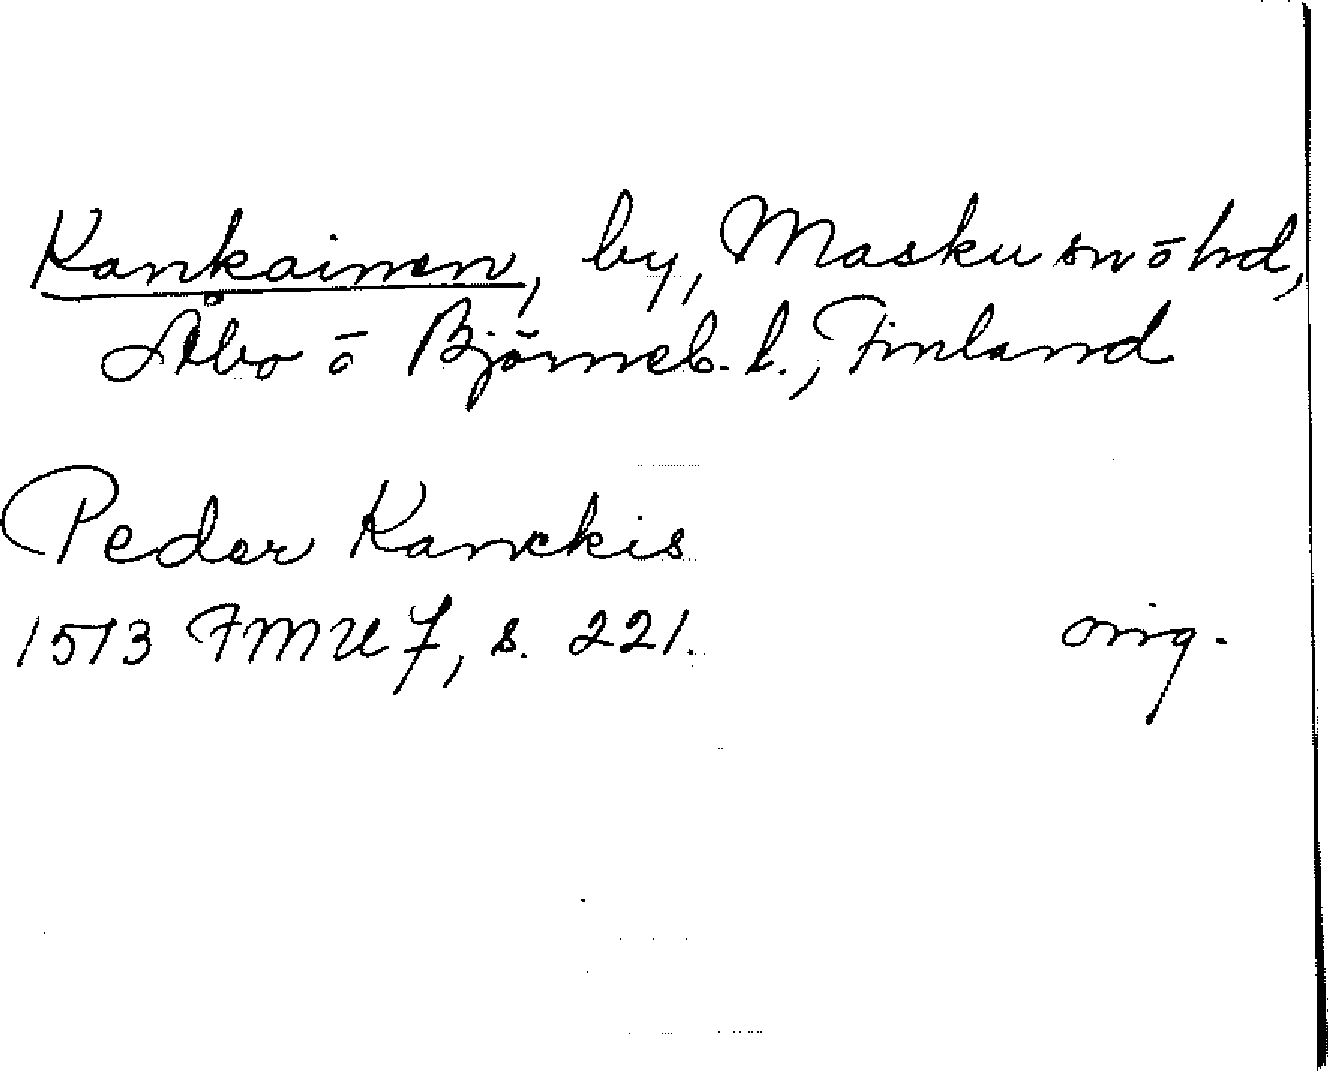 Kankainen, by, Masku sn o hd,
Åbo o Björneb. l., Finland
Peder Kanckis
1513 FMU 7, s. 221.
orig.